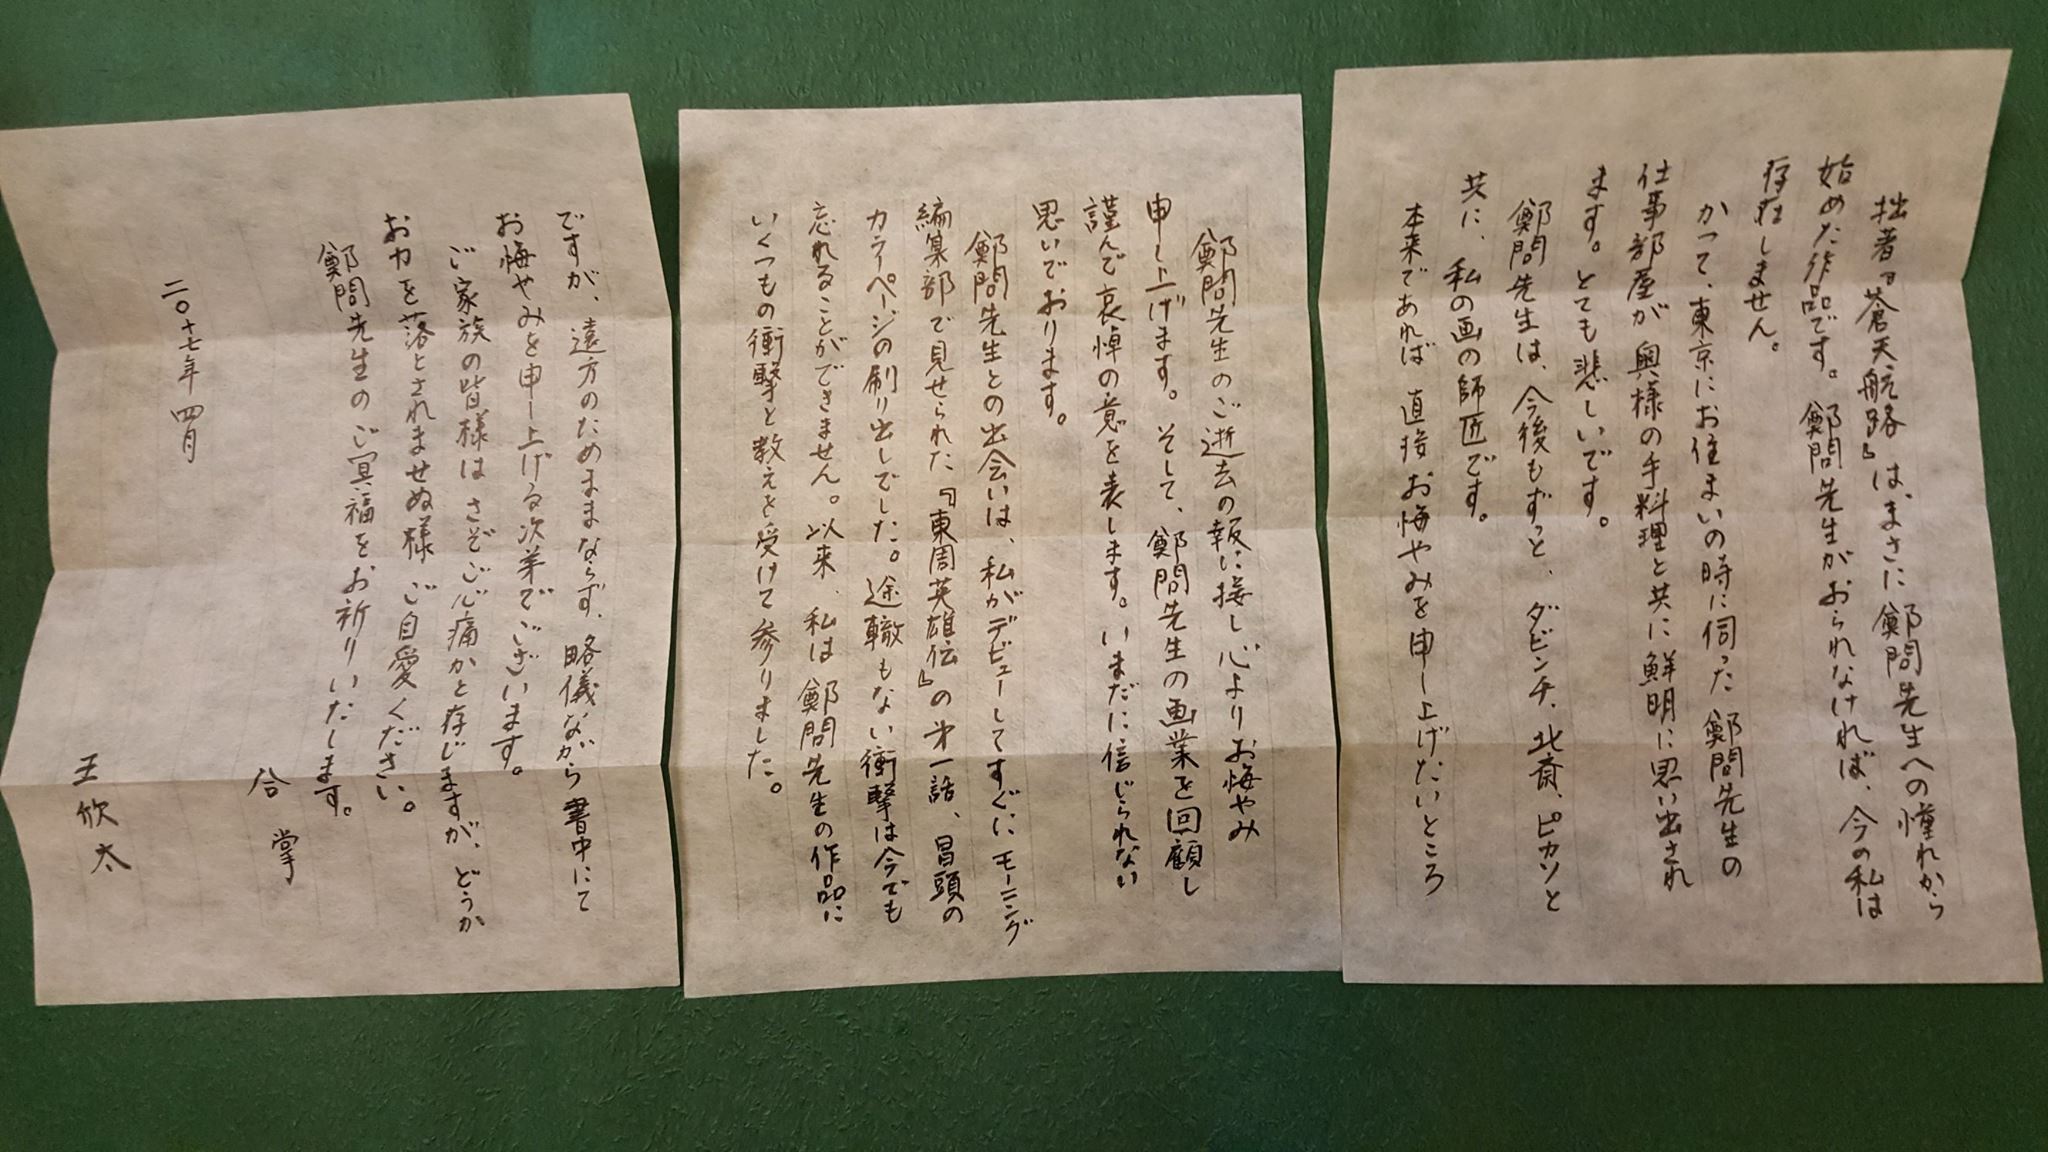 鄭問先生のご逝去の報に接し心よりお悔やみ
申し上げます。そして、鄭問先生の画業を回顧し
謹んで哀悼の意を表します。いまだに信じられない
思いでおります。
鄭問先生との出会いは、私がデビューしてすぐにモーニング
編集部で見せられた『東周英雄伝』の第一話、冒頭の
カラーページの刷り出しでした。途轍もない衝撃は今でも
忘れることができません。以来、私は鄭問先生の作品に
いくつもの衝撃と教えを受けて参りました。
拙著『蒼天航路』は、まさに鄭問先生への憧れから
始めた作品です。鄭問先生がおられなければ、今の私は
存在しません。
かつて、東京にお住まいの時に伺った鄭問先生の
仕事部屋が奥様の手料理と共に鮮明に思い出され
ます。とても悲しいです。
鄭問先生は、今後もずっと、ダビンチ、北斎、ピカソと
共に、私の画の師匠です。
本来であれば直接お悔やみを申し上げたいところ
ですが、遠方のためままならず、略儀ながら書中にて
お悔やみを申し上げる次第でございます。
ご家族の皆様はさぞご心痛かと存じますが、どうか
お力を落とされませぬ様ご自愛ください。
鄭問先生のご冥福をお祈りいたします。
合掌
二〇十七年四月
王欣太